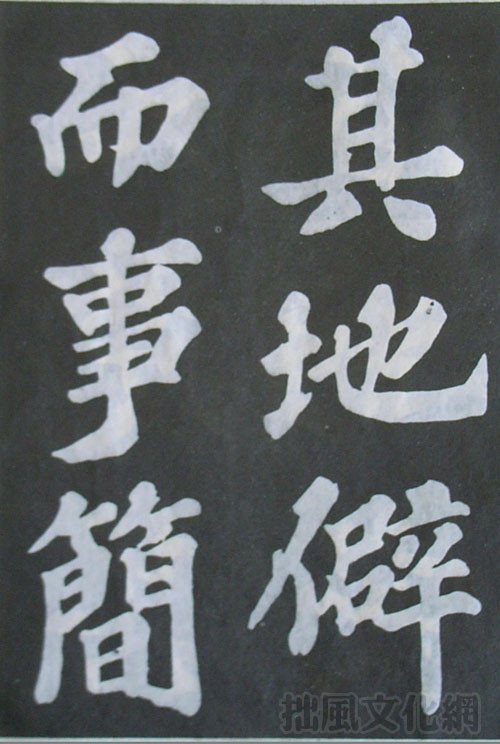 其地僻
而事簡
拙風文化網